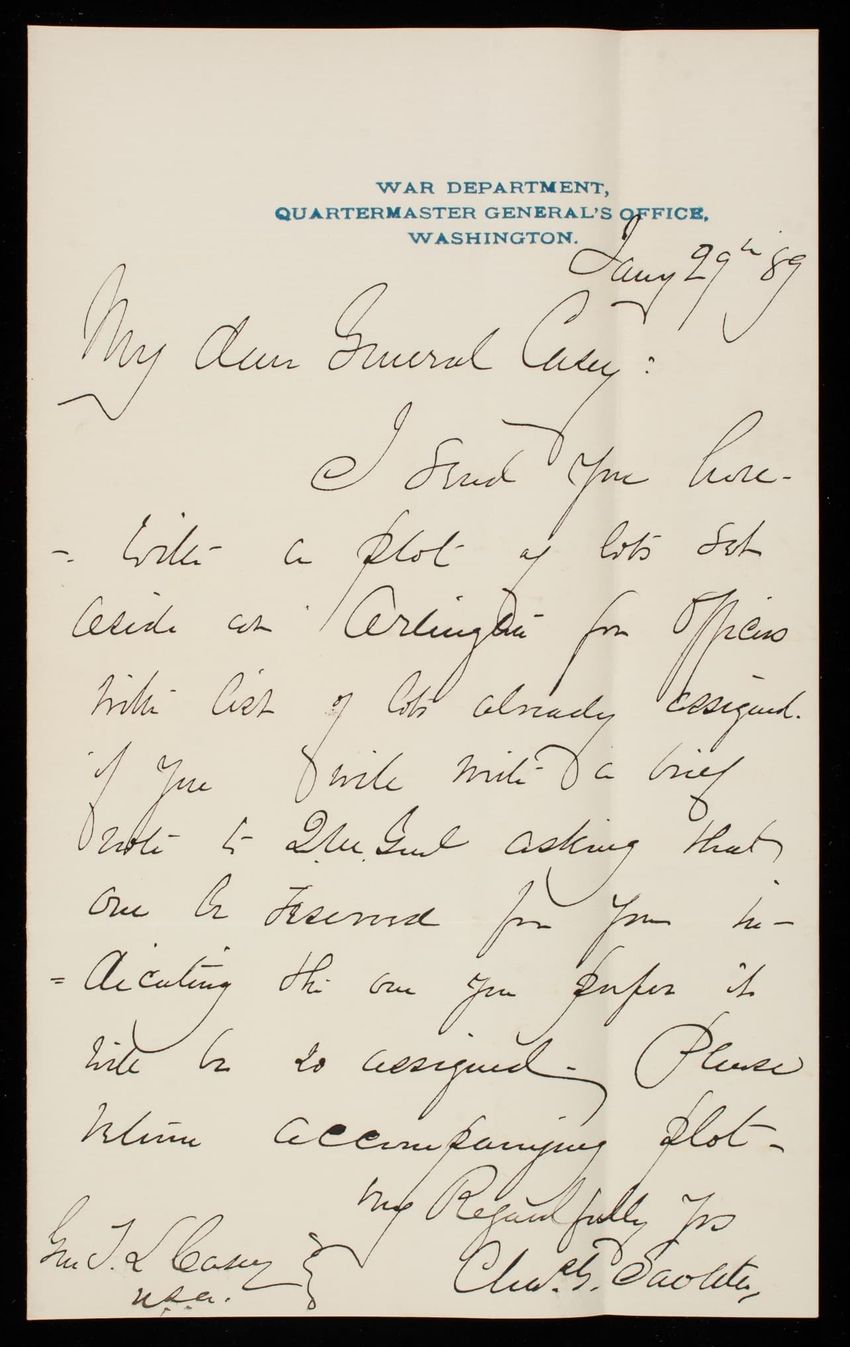 WAR DEPARTMENT,
QUARTERMASTER GENERAL'S OFFICE,
WASHINGTON.
Jany 29th 89
My dear General Casey:
I send you here-
- with a plot of lots set
aside at Arlington for officers
with list of lots already assigned.
if you will write a brief
note to Q.M. Genl asking that
one be reserved for you in-
=dicating the one you prefer it
will be so assigned - Please
return accompanying plot -
Very Regardfully Yrs
Gen T. L Casey
U.S.A.
Chas. G.